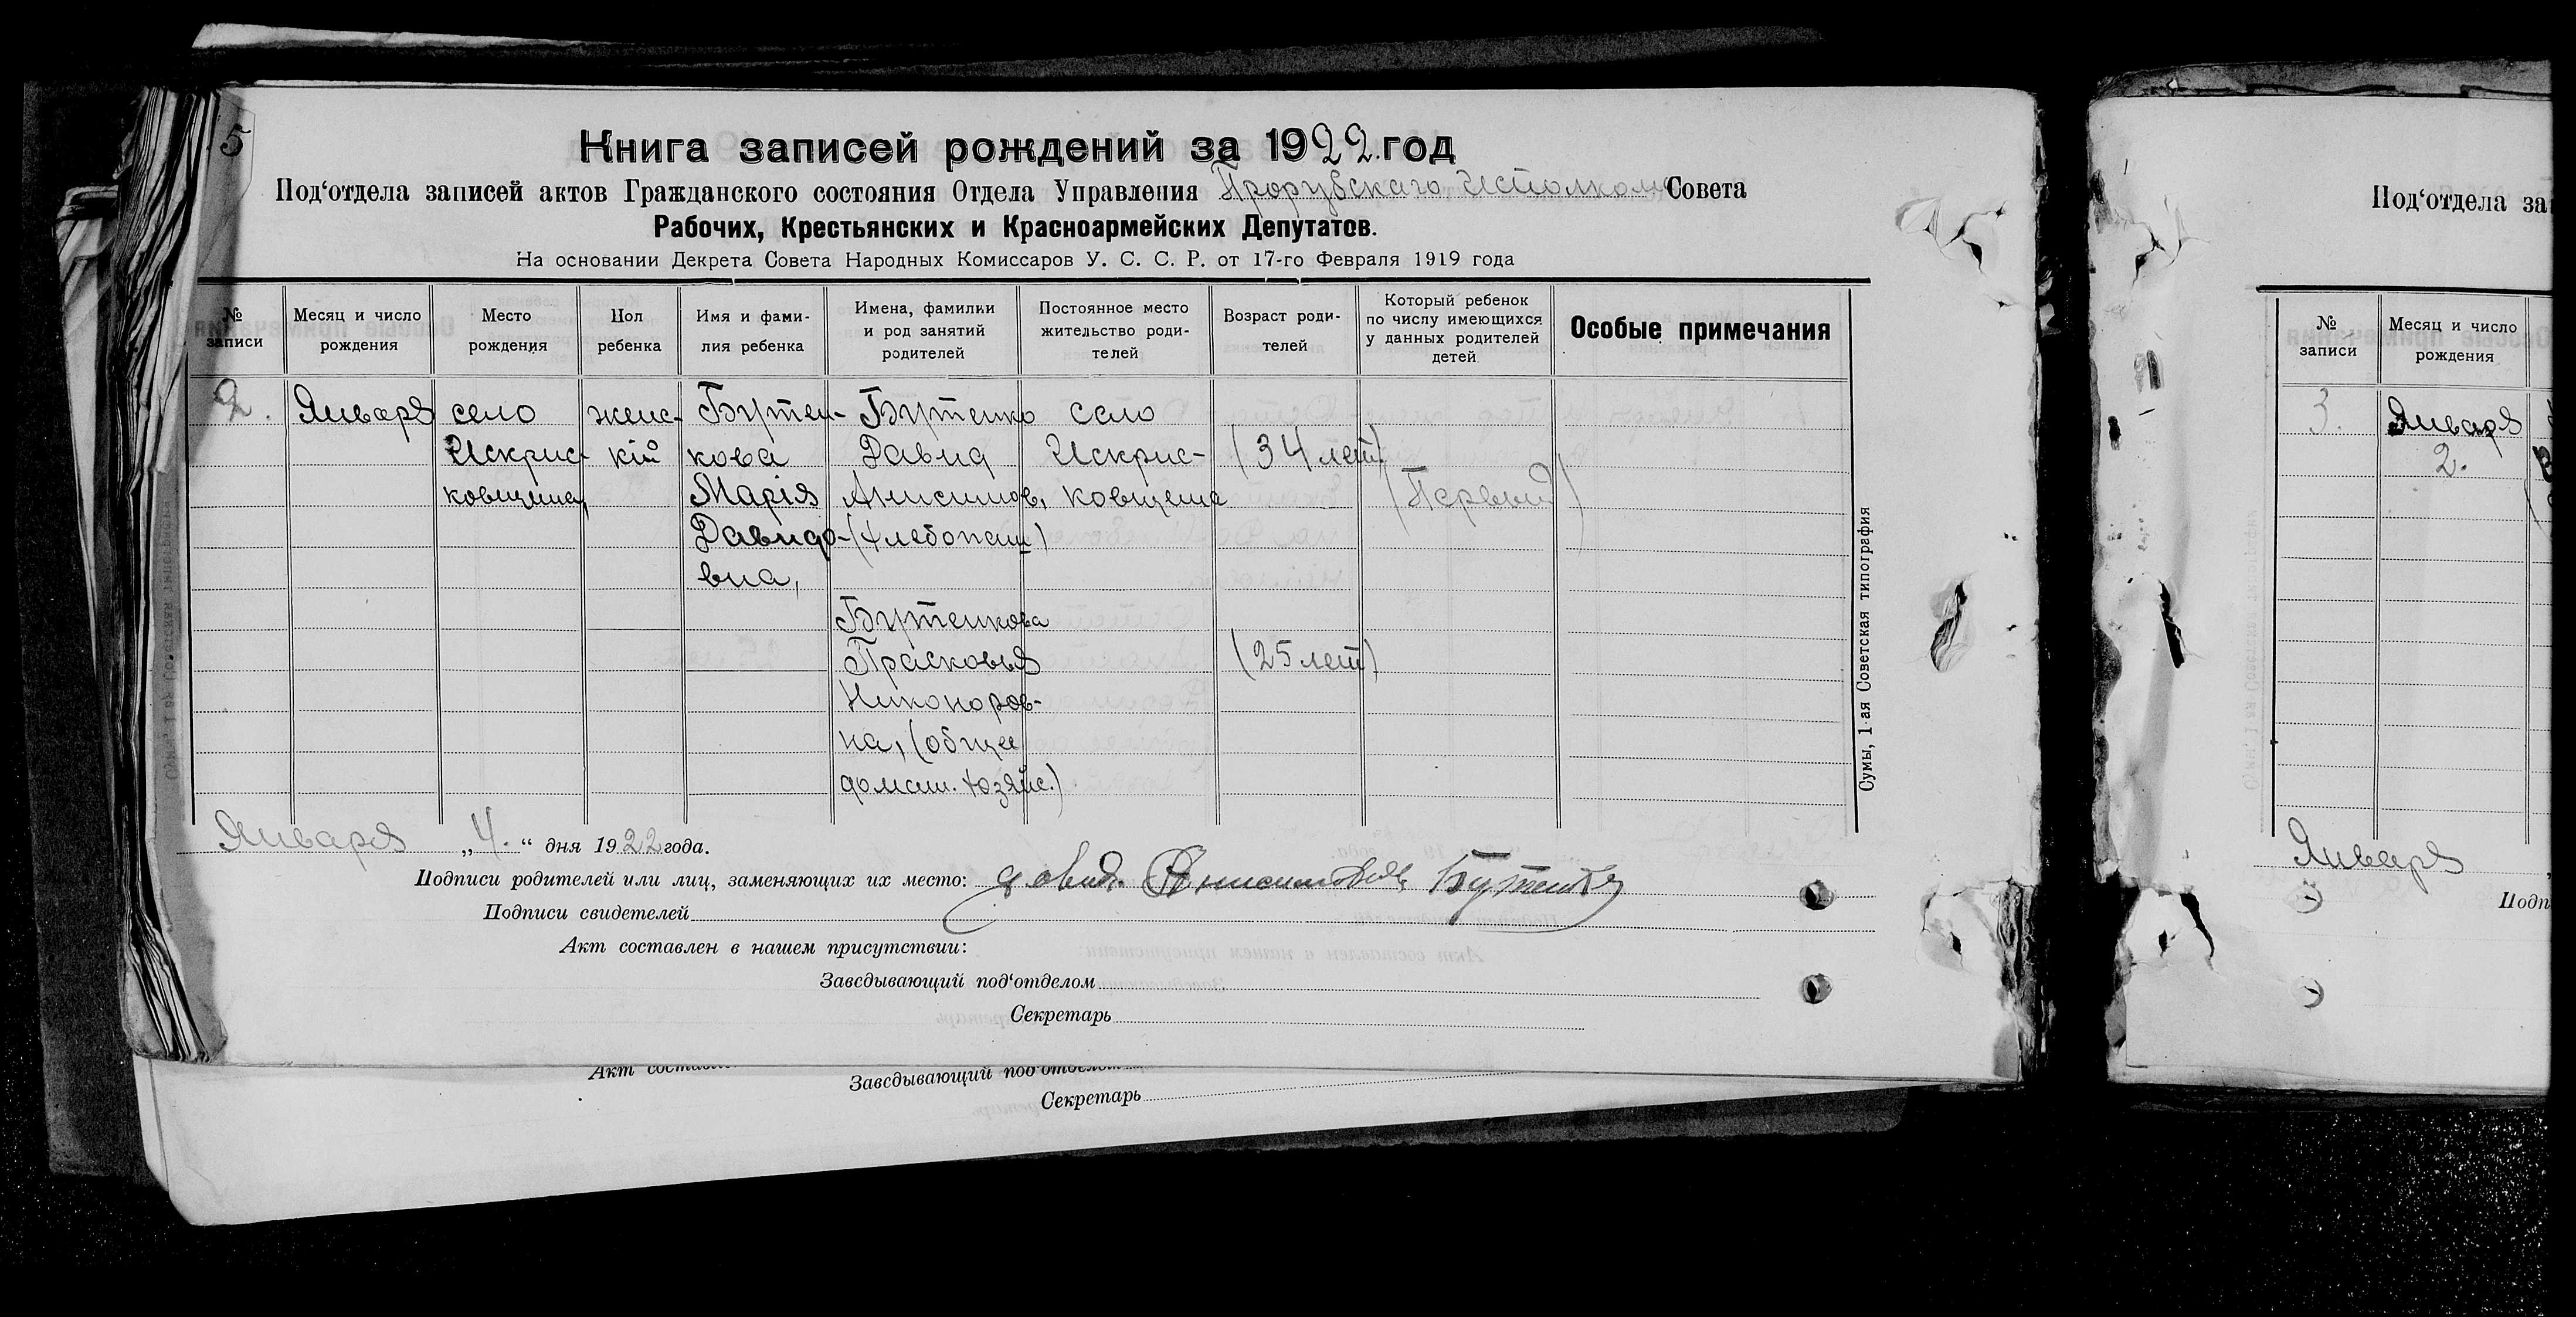 5
Книга записей рождений за 1922. год
Под‘отдела записей актов Гражданского состояния Отдела Управления Прорубскаго Исполкома Совета
Рабочих, Крестьянских и Красноармейских Депутатов.
На основании Декрета Совета Народных Комиссаров У. С. С. Р. от 17-го Февраля 1919 года
№ записи
Месяц и число рождения
Место рождения
Пол ребенка
Имя и фамилия ребенка
Имена, фамилии и род занятий родителей
Постоянное место жительство родителей
Возраст родителей
Который ребенок по числу имеющихся у данных родителей детей
Особые примечания
2.
Января
село
Искрис-
ковщина,
женс-
кій
Бутен-
кова
Марія
Давидо-
вна,
Бутенко
Давид
Анисимов,
(хлебопаш)
Бутенкова
Прасковья
Никоноров-
на, (общее
домаш. хозяйс.)
село
Искрис-
ковщина
(34 лет)
(25 лет)
(Первый)
Января „4.“ дня 1922 года.
Подписи родителей или лиц, заменяющих их место: Довид Анисимовъ Бутенко
Подписи свидетелей
Акт составлен в нашем присутствии:
Заведывающий под‘отделом
Секретарь
Сумы, 1-ая Советская типография
Акт
Заведывающий под‘отделом
Секретарь
Под‘отдела за
№ записи
Месяц и число рождения
3.
Января
2.
Января
Подп